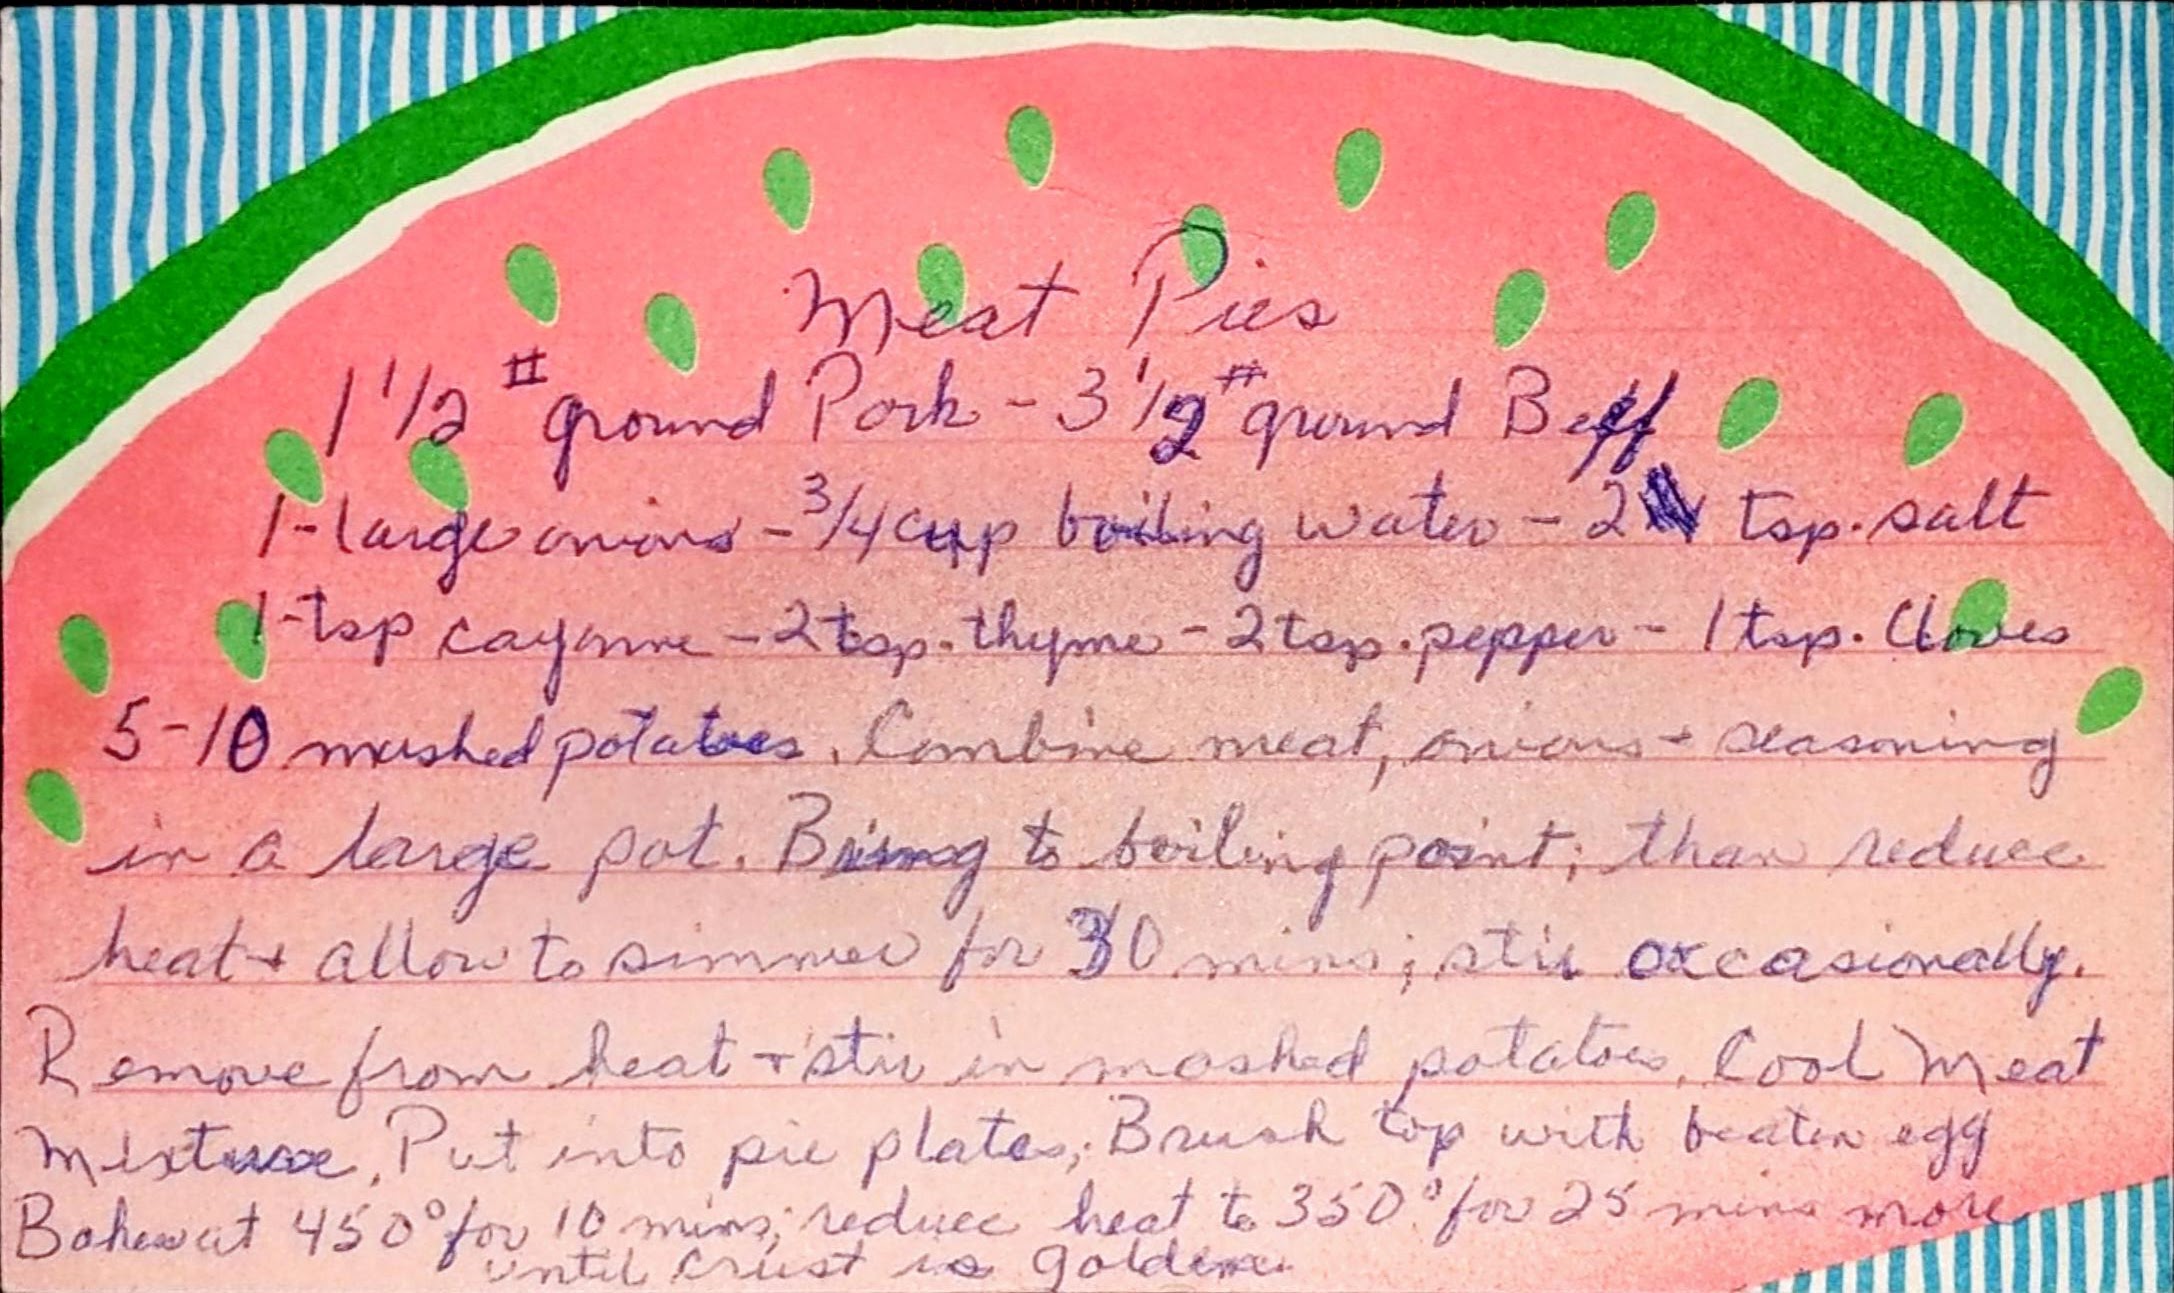 Meat Pies
1 1/2 # ground Pork - 3 1/2 # ground Beef
1-large onions - 3/4 cup boiling water - 2 tsp. salt
1-tsp cayenne - 2 tsp. thyme - 2 tsp. pepper - 1 tsp. Cloves
5-10 mashed potatoes. Combine meat, onions + seasoning
in a large pot. Bring to boiling point; than reduce
heat + allow to simmer for 30 mins; stir occasionally.
Remove from heat + stir in mashed potatoes. Cool Meat
Mixture. Put into pie plates; Brush top with beaten egg
Bake at 450° for 10 mins; reduce heat to 350° for 25 mins more
until crust is golden